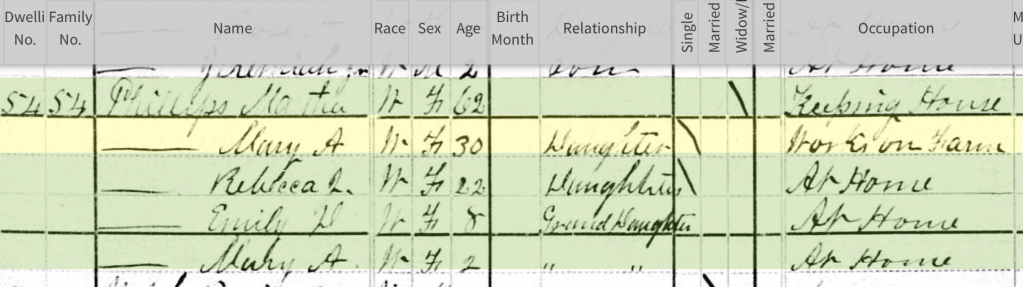 Dwelli No. Family No. Name Race Sex Age Birth Month Relationship Single Married Widow/ Married Occupation M U
Jeremiah Jr W M 2 Son At Home
54 54 Phillips Martha W F 62 Keeping House
—— Mary A W F 30 Daughter Works on Farm
—— Rebecca L. W F 22 Daughter At Home
—— Emily W F 8 Grand Daughter At Home
—— Mary A W F 2 " " At Home